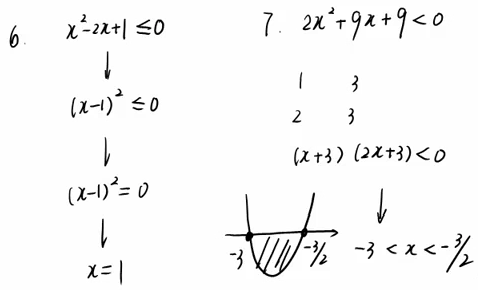 6. x²-2x+1 ≤0
↓
(x-1)² ≤0
↓
(x-1)² = 0
↓
x=1
7. 2x²+9x+9<0
1 3
2 3
(x+3)(2x+3)<0
↓
-3 -3/2
-3 < x < -3/2